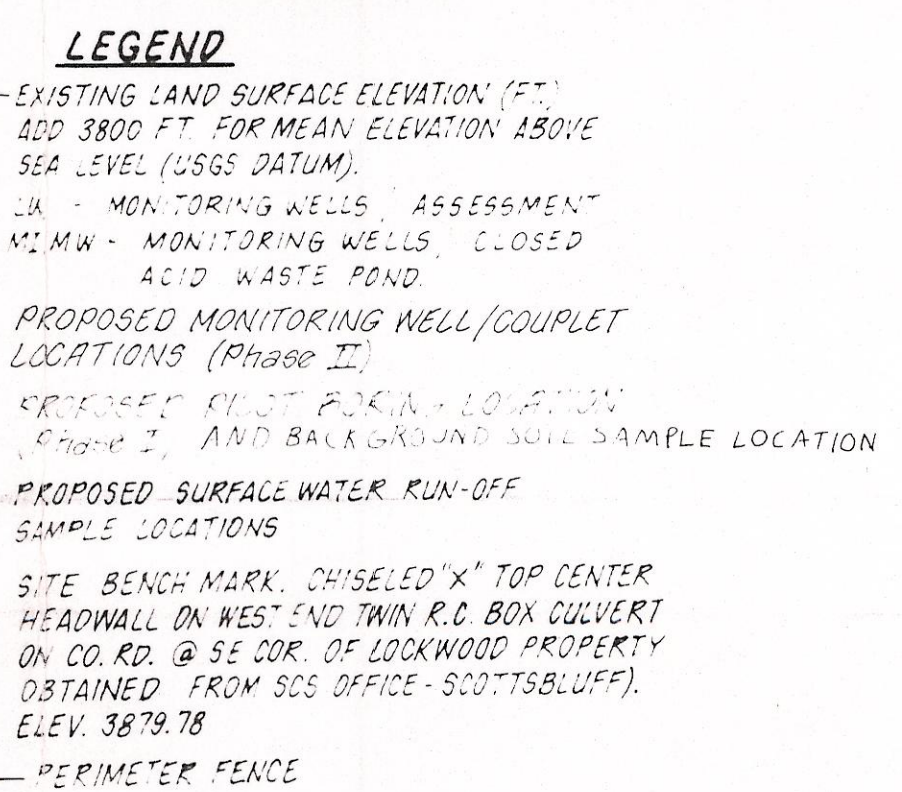 LEGEND
- EXISTING LAND SURFACE ELEVATION (FT.)
ADD 3800 FT. FOR MEAN ELEVATION ABOVE
SEA LEVEL (USGS DATUM).
LW - MONITORING WELLS, ASSESSMENT
MI.MW - MONITORING WELLS, CLOSED
ACID WASTE POND.
PROPOSED MONITORING WELL/COUPLET
LOCATIONS (Phase II)
PROPOSED PILOT BORING LOCATION
(Phase I) AND BACKGROUND SOIL SAMPLE LOCATION
PROPOSED SURFACE WATER RUN-OFF
SAMPLE LOCATIONS
SITE BENCH MARK. CHISELED "X" TOP CENTER
HEADWALL ON WEST END TWIN R.C. BOX CULVERT
ON CO. RD. @ SE COR. OF LOCKWOOD PROPERTY
OBTAINED FROM SCS OFFICE - SCOTTSBLUFF).
ELEV. 3879.78
— PERIMETER FENCE